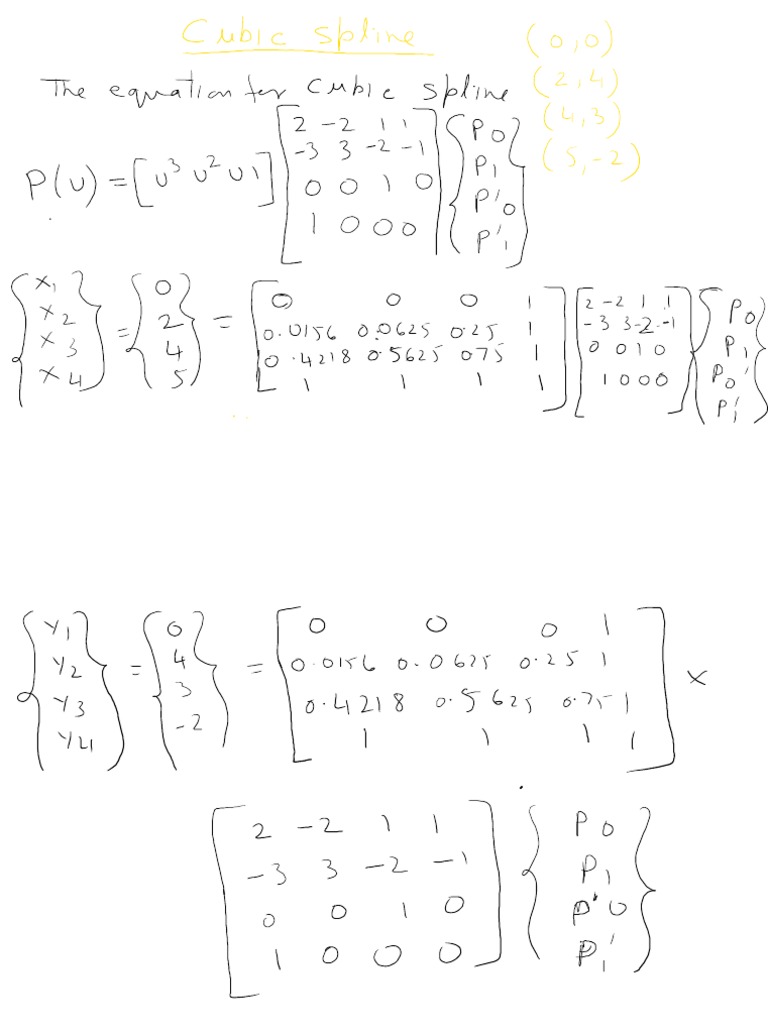 Cubic spline
(0,0)
(2,4)
(4,3)
(5,-2)
The equation for cubic spline
P(u) = [u³ u² u 1] [2 -2 1 1
-3 3 -2 -1
0 0 1 0
1 0 0 0] {P0
P1
P'0
P'1}
{x1
x2
x3
x4} = {0
2
4
5} = [0 0 0 1
0.0156 0.0625 0.25 1
0.4218 0.5625 0.75 1
1 1 1 1] [2 -2 1 1
-3 3 -2 -1
0 0 1 0
1 0 0 0] {P0
P1
P0'
P1'}
{y1
y2
y3
y4} = {0
4
3
-2} = [0 0 0 1
0.0156 0.0625 0.25 1
0.4218 0.5625 0.75 1
1 1 1 1] x
[2 -2 1 1
-3 3 -2 -1
0 0 1 0
1 0 0 0] {P0
P1
P'0
P1'}